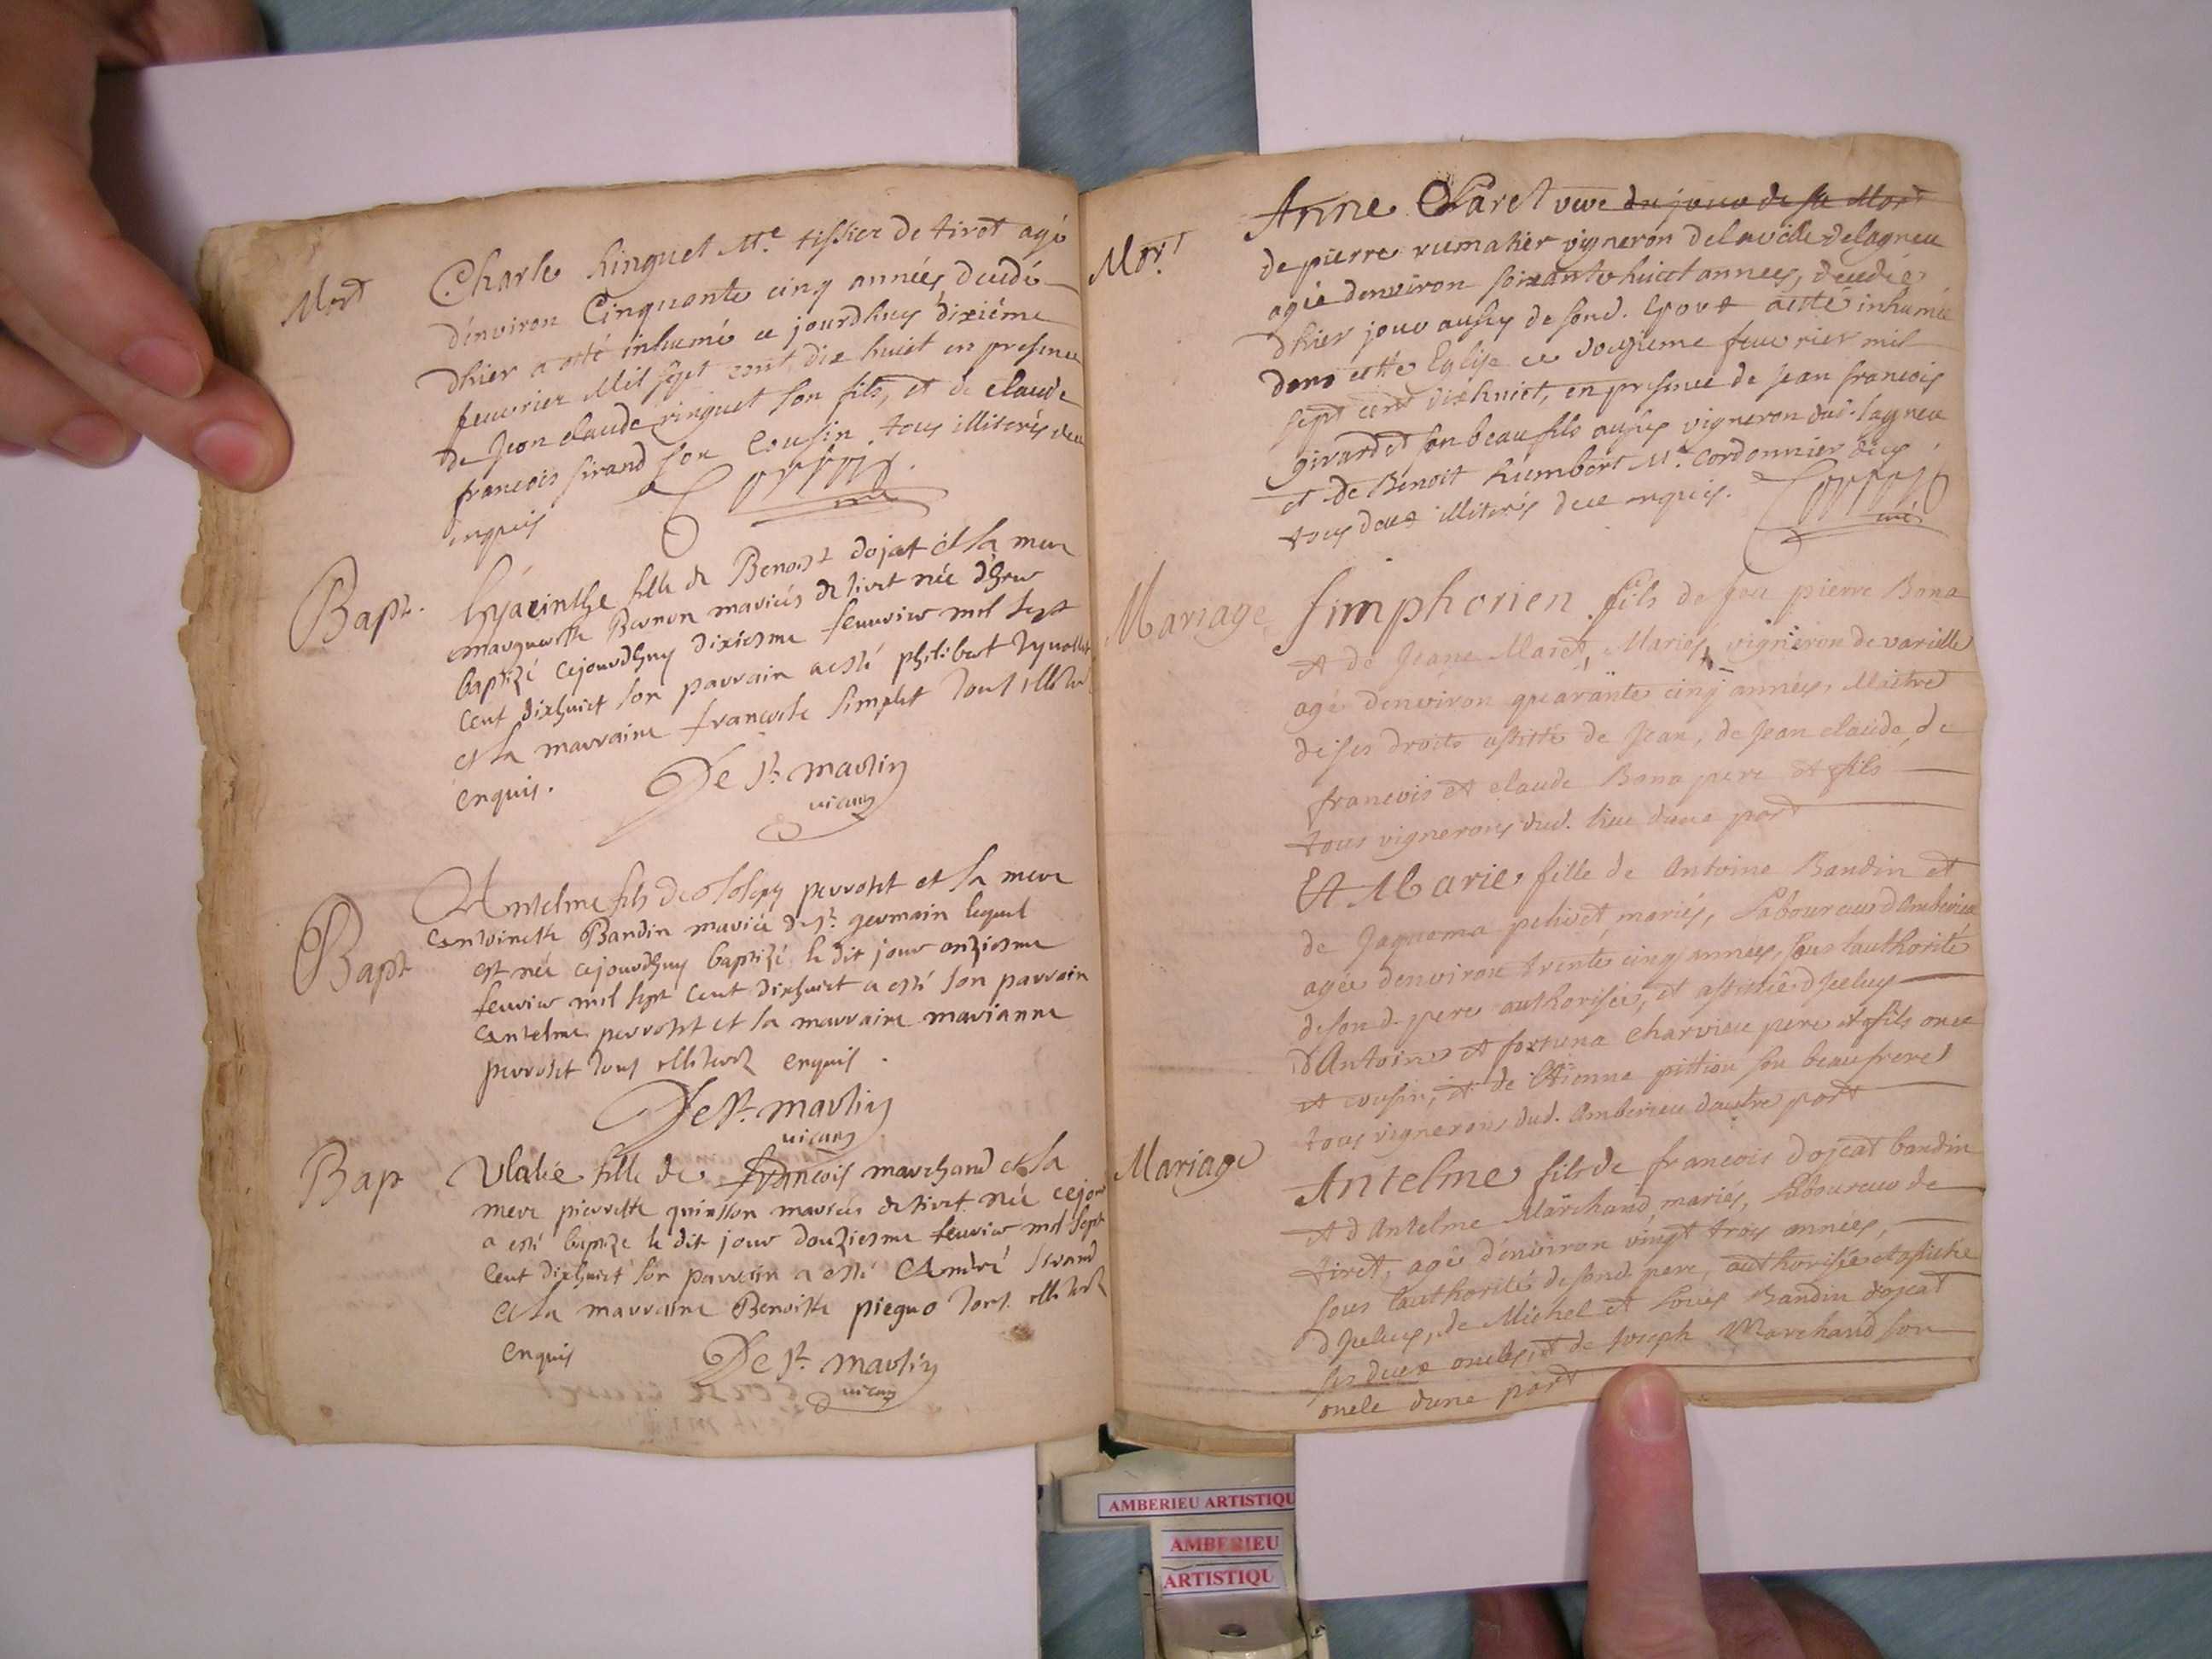 Mort
Charle Ringuet Me. tissier de tiret agé
d'environ Cinquante cinq années, decedé
d'hier a esté inhumé ce jourdhuy dixiéme
feuvrier Mil sept cent dix huict en presence
de Jean claude ringuet son fils, et de claude
francois sirand son Cousin, tous illiterés deu
enquis
curé
Bapt.
hyacinthe fille de Benoist dojat et sa mere
marguerithe mariés de tiret née d'hyer
baptizé cejourdhuy dixiesme feuvrier mil sept
cent dixhuict son parrain a esté philibert
et sa marraine francoise simplet tous illiterés
enquis.
De St. martin
vicaire
Bapt
Antelme fils de Joseph perrozet et sa mere
antoinette Bandin mariés de St. germain lequel
est née cejourdhuy baptizé le dit jour onziesme
feuvier mil sept cent dixhuict a esté son parrain
antelme perrozet et sa marraine marianne
perrozet tous illiterés enquis.
De St. martin
vicaire
Bap
Ulalie fille de francois marchand et sa
mere pierrette quinson mariés de tiret née cejour
a esté baptizé le dit jour douziesme feuvier mil sept
cent dixhuict son parrain a esté André sirand
et la marraine Benoitte piegno tous illiterés
enquis
De St. martin
vicaire
Mort
Anne Claret veve du jour de sa Mort
de pierre rumatier vigneron de la ville de lagneu
agée denviron soixante huict annees, decedée
dhier jour aussy de sond. Epoux a esté inhumée
dans cette Eglise ce douzieme feuvrier mil
sept cent dixhuict, en presence de Jean francois
girardet son beau fils aussy vigneron dud. lagneu
et de Benoit humbert Me. Cordonnier dicy
tous deux illiterés de ce enquis.
curé
Mariage
Simphorien fils de feu pierre Bona
et de Jeane Maret, Mariés, vigneron de vareille
agé denviron quarante cinq années, Maitre
de ses droits assisté de Jean, de Jean claude, de
francois et claude Bona pere et fils
tous vignerons dud. lieu dune part
Et Marie fille de Antoine Bandin et
de Jaquema petivet mariés, Laboureur d'Amberieu
agée denviron trente cinq années, sous l'authorité
de son d. pere authorisée, et assistée d'Iceluy
d'Antoine et fortuna Charvieu pere et fils oncle
et cousin, et de Etienne pittion son beau frere
tous vignerons dud. Amberieu dautre part
Mariage
Antelme fils de francois Dojeat bandin
et d'Antelme Marchand mariés, Laboureur de
tiret, agé d'environ vingt trois années,
sous l'authorité de sond. pere, authorisée et assisté
d'Iceluy, de Michel et Louis Bandin dojeat
ses deux oncles, et de Joseph Marchand son
oncle dune part
AMBERIEU ARTISTIQU
AMBERIEU
ARTISTIQU